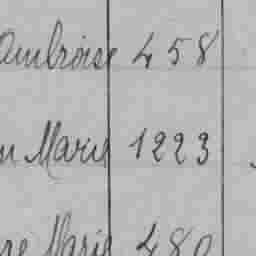 Ambroise 458
n Marie 1223
ne Marie 480